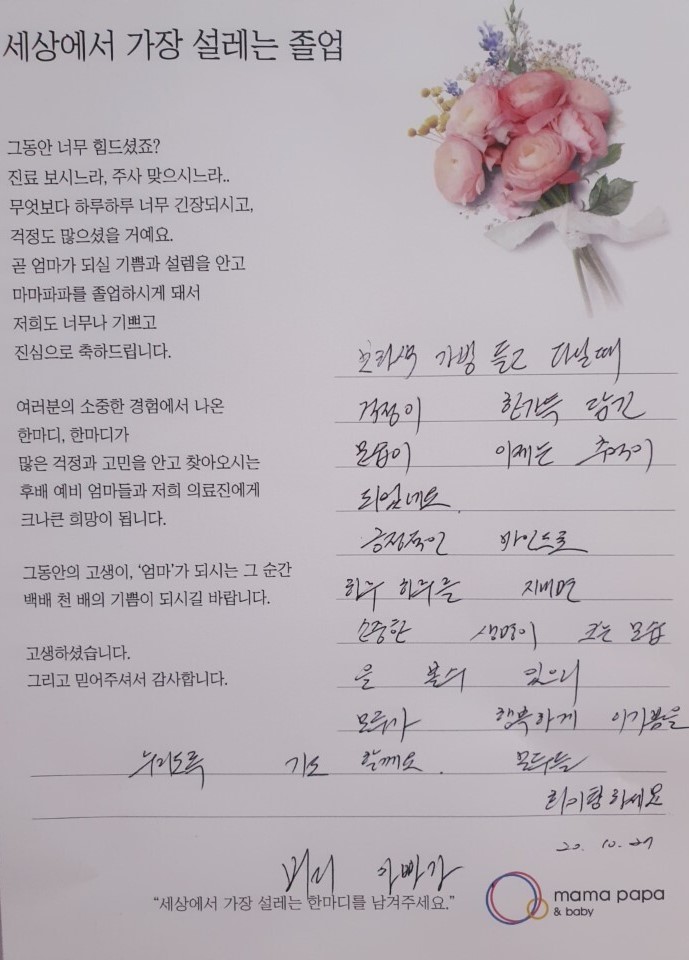 세상에서 가장 설레는 졸업
그동안 너무 힘드셨죠?
진료 보시느라, 주사 맞으시느라..
무엇보다 하루하루 너무 긴장되시고,
걱정도 많으셨을 거예요.
곧 엄마가 되실 기쁨과 설렘을 안고
마마파파를 졸업하시게 돼서
저희도 너무나 기쁘고
진심으로 축하드립니다.
여러분의 소중한 경험에서 나온
한마디, 한마디가
많은 걱정과 고민을 안고 찾아오시는
후배 예비 엄마들과 저희 의료진에게
크나큰 희망이 됩니다.
그동안의 고생이, '엄마'가 되시는 그 순간
백배 천 배의 기쁨이 되시길 바랍니다.
고생하셨습니다.
그리고 믿어주셔서 감사합니다.
보라색 가방 들고 다닐때
걱정이 한가득 담긴
모습이 이제는 추억이
되었네요.
긍정적인 마인드로
하루 하루를 지내면
소중한 생명이 크는 모습
을 볼수 있으니
모두가 행복하게 이기쁨을
누리도록 기도 할께요. 모두들
화이팅하세요
20. 10. 27
아빠가
"세상에서 가장 설레는 한마디를 남겨주세요."
mama papa
& baby